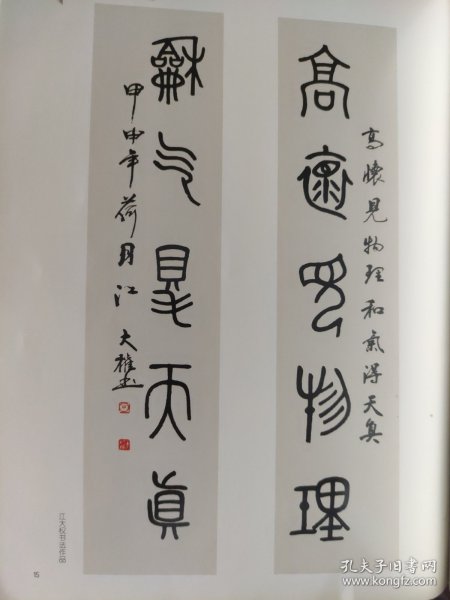 高懷見物理
高懷見物理和氣得天真
龢气得天真
甲申年荷月江
大權書
江大权书法作品
15
孔夫子旧书网
www.kongfz.com